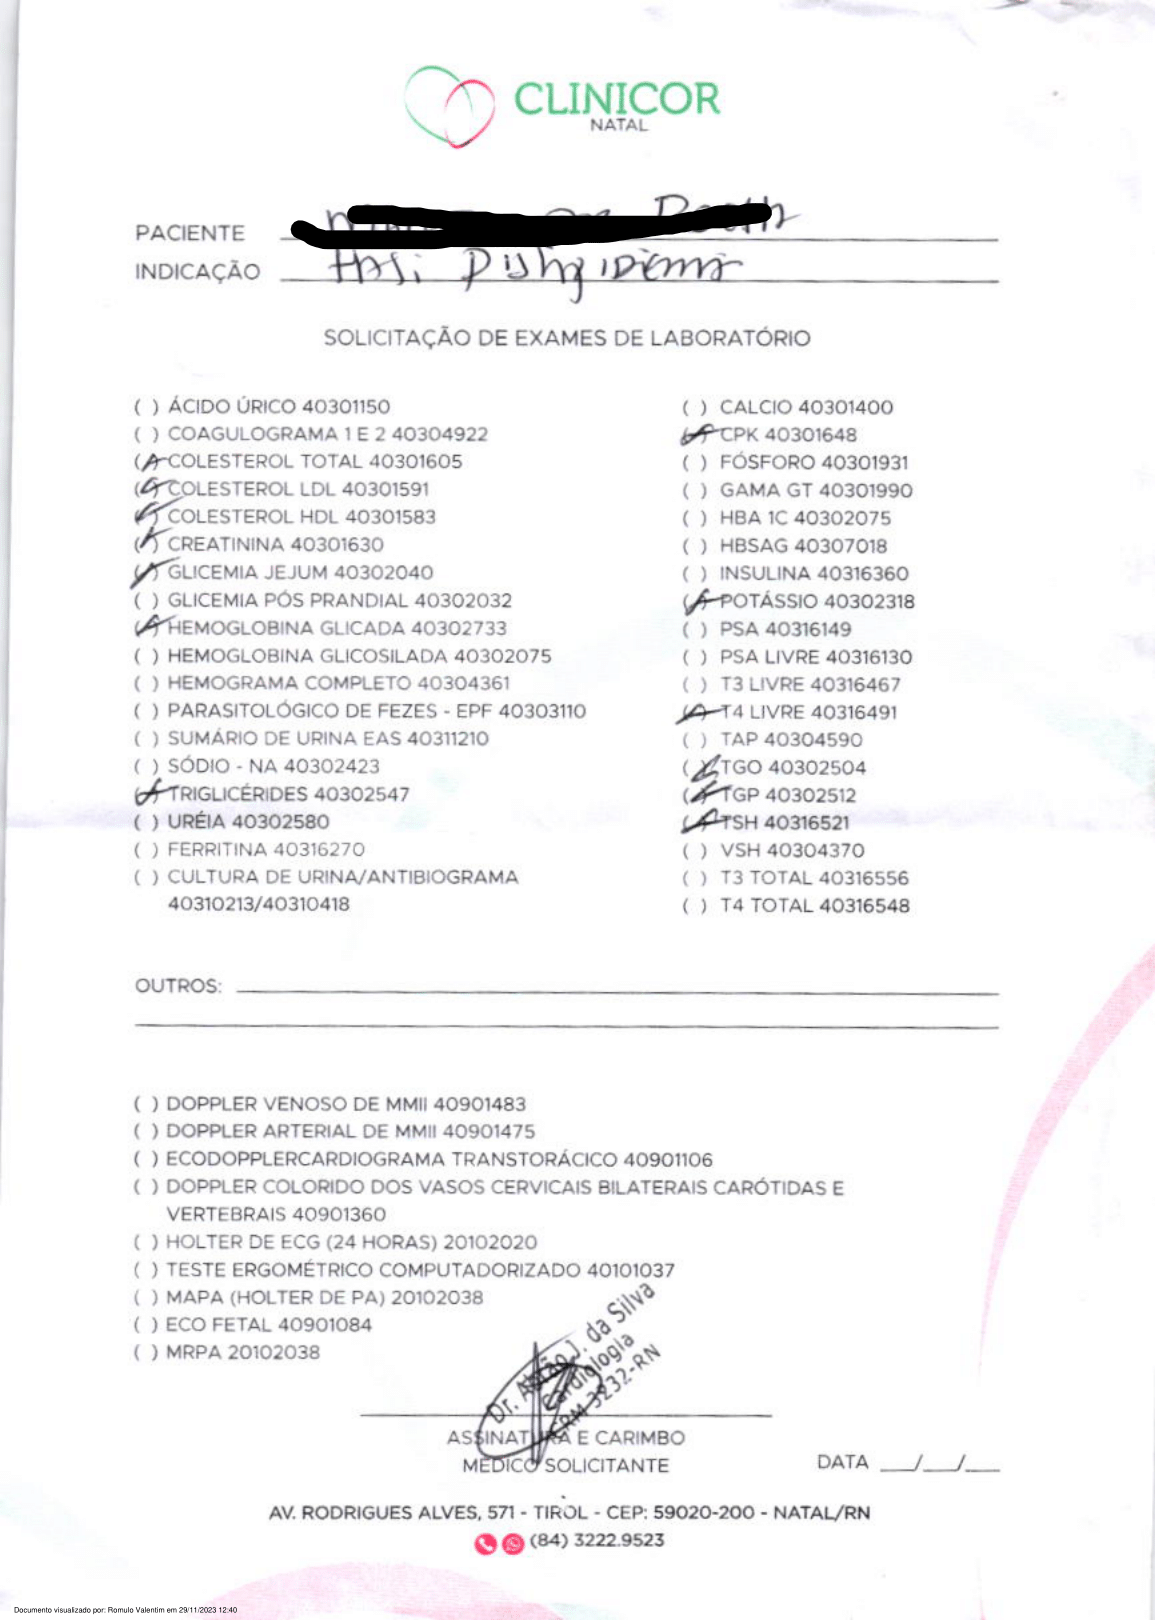 CLINICOR
NATAL
PACIENTE
INDICAÇÃO HAS; Dislipidemia
SOLICITAÇÃO DE EXAMES DE LABORATÓRIO
( ) ÁCIDO ÚRICO 40301150
( ) COAGULOGRAMA 1 E 2 40304922
(/) COLESTEROL TOTAL 40301605
(/) COLESTEROL LDL 40301591
(/) COLESTEROL HDL 40301583
(/) CREATININA 40301630
(/) GLICEMIA JEJUM 40302040
( ) GLICEMIA PÓS PRANDIAL 40302032
(/) HEMOGLOBINA GLICADA 40302733
( ) HEMOGLOBINA GLICOSILADA 40302075
( ) HEMOGRAMA COMPLETO 40304361
( ) PARASITOLÓGICO DE FEZES - EPF 40303110
( ) SUMÁRIO DE URINA EAS 40311210
( ) SÓDIO - NA 40302423
(/) TRIGLICÉRIDES 40302547
( ) URÉIA 40302580
( ) FERRITINA 40316270
( ) CULTURA DE URINA/ANTIBIOGRAMA
40310213/40310418
( ) CALCIO 40301400
(/) CPK 40301648
( ) FÓSFORO 40301931
( ) GAMA GT 40301990
( ) HBA 1C 40302075
( ) HBSAG 40307018
( ) INSULINA 40316360
(/) POTÁSSIO 40302318
( ) PSA 40316149
( ) PSA LIVRE 40316130
( ) T3 LIVRE 40316467
(/) T4 LIVRE 40316491
( ) TAP 40304590
(/) TGO 40302504
(/) TGP 40302512
(/) TSH 40316521
( ) VSH 40304370
( ) T3 TOTAL 40316556
( ) T4 TOTAL 40316548
OUTROS:
( ) DOPPLER VENOSO DE MMII 40901483
( ) DOPPLER ARTERIAL DE MMII 40901475
( ) ECODOPPLERCARDIOGRAMA TRANSTORÁCICO 40901106
( ) DOPPLER COLORIDO DOS VASOS CERVICAIS BILATERAIS CARÓTIDAS E
VERTEBRAIS 40901360
( ) HOLTER DE ECG (24 HORAS) 20102020
( ) TESTE ERGOMÉTRICO COMPUTADORIZADO 40101037
( ) MAPA (HOLTER DE PA) 20102038
( ) ECO FETAL 40901084
( ) MRPA 20102038
Dr. J. da Silva
Cardiologia
CRM 3232-RN
ASSINATURA E CARIMBO
MÉDICO SOLICITANTE
DATA __/__/__
AV. RODRIGUES ALVES, 571 - TIROL - CEP: 59020-200 - NATAL/RN
(84) 3222.9523
Documento visualizado por: Romulo Valentim em 29/11/2023 12:40